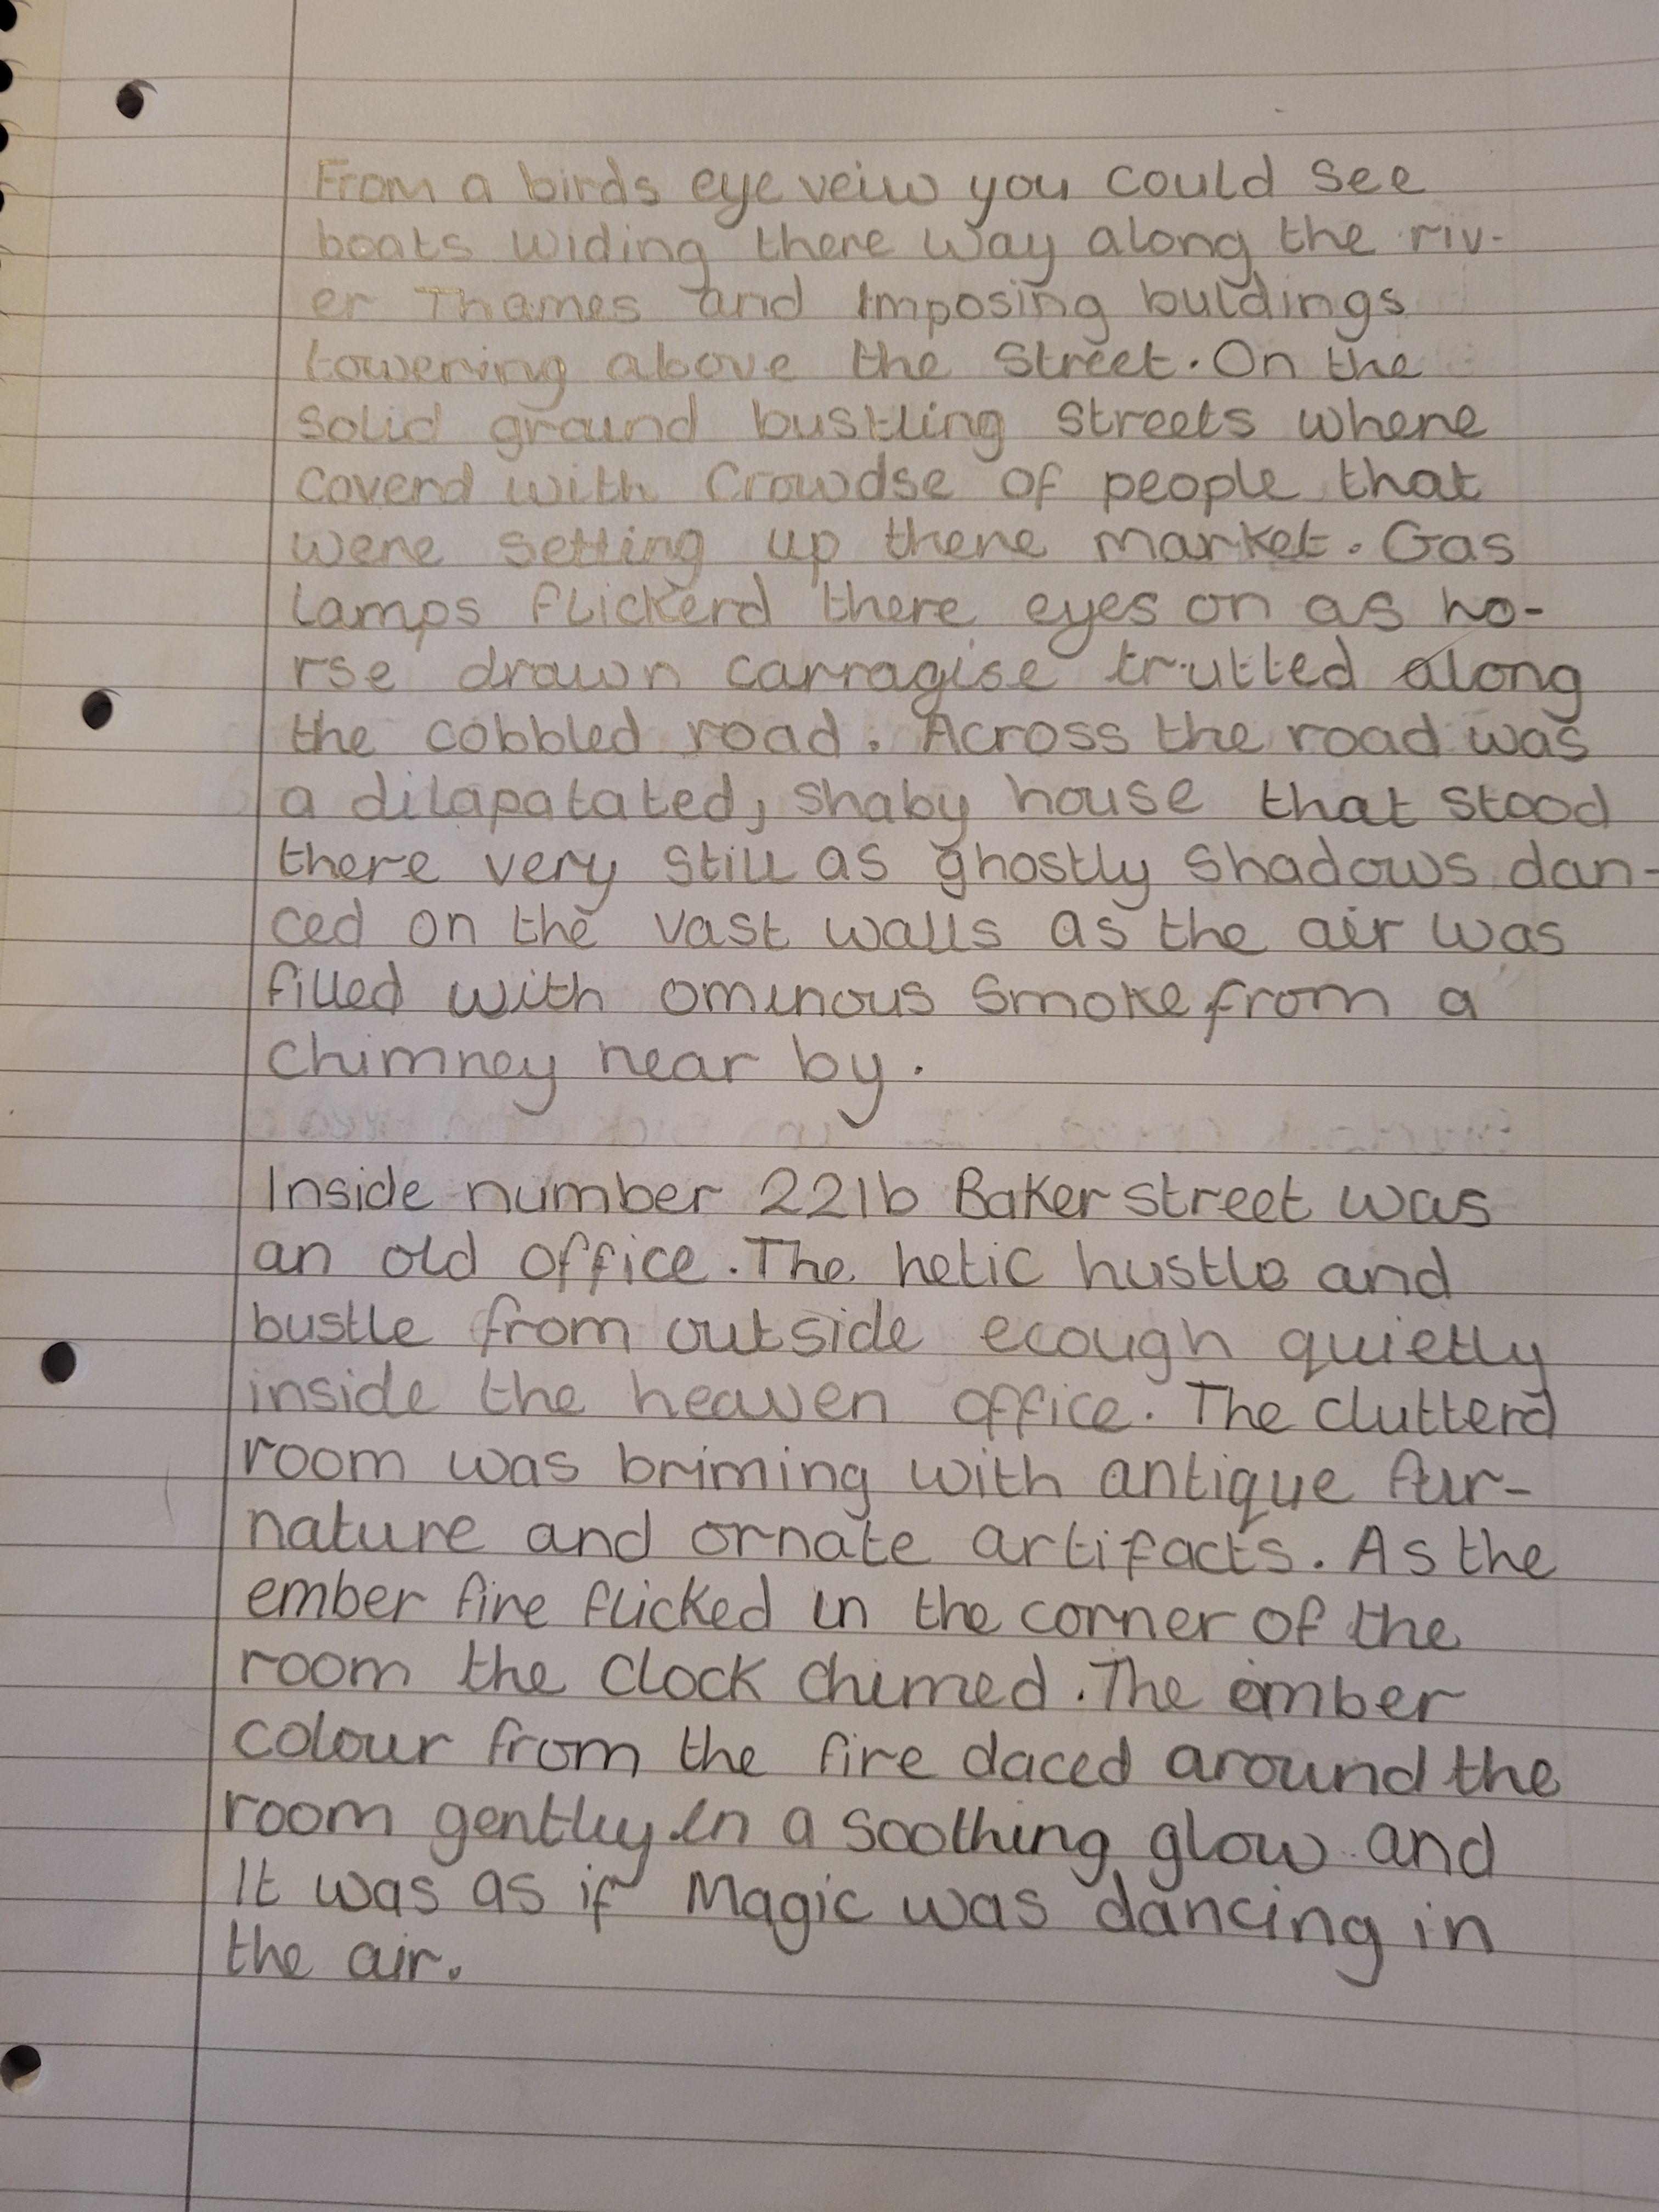 From a birds eye veiw you could see
boats widing there way along the riv-
er Thames and Imposing buldings
towering above the street. On the
solid ground bustling streets where
coverd with Crowdse of people that
were setting up there market. Gas
lamps flickerd there eyes on as ho-
rse drawn carragise trutted along
the cobbled road. Across the road was
a dilapatated, shaby house that stood
there very still as ghostly shadows dan-
ced on the vast walls as the air was
filled with ominous smoke from a
chimney near by.
Inside number 221b Baker street was
an old office. The hetic hustle and
bustle from outside ecough quietly
inside the heaven office. The clutterd
room was briming with antique fur-
nature and ornate artifacts. As the
ember fire flicked in the corner of the
room the clock chimed. The ember
colour from the fire daced around the
room gently in a soothing glow and
It was as if Magic was dancing in
the air.